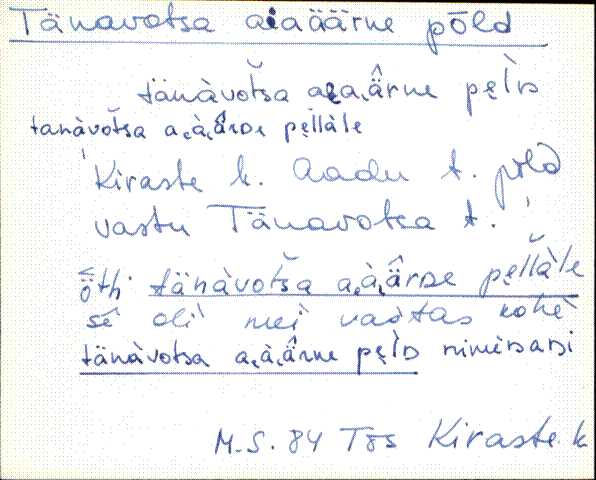 Tänavotsa aiaäärne põld
tänàvot̆sa aɛa̬ä̂rne pe̬l̀ʙ
tanàvot̆sa a̬à̬ä̂rᴅe pe̬llàle
Kiraste k. Aadu t. põld
vastu Tänavotsa t.
öth tänàvot̆sa a̬à̬ä̂rᴅe pe̬llàle
sē oli mei vastas kohè
tänàvotsa a̬à̬ä̂rne pe̬l̀ʙ nimèʙaʙi
M.S. 84 Tõs Kiraste k